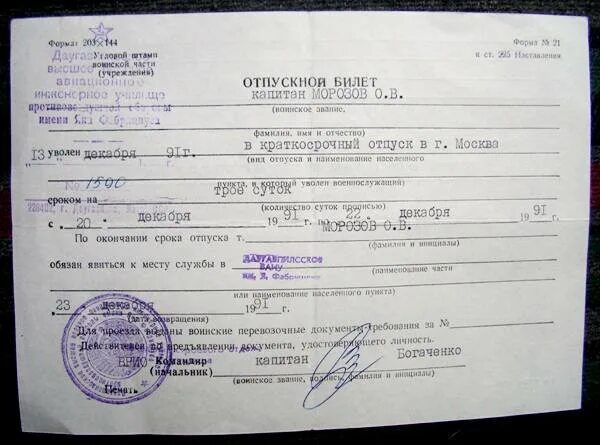 Форма 203×144
Форма № 21
Угловой штамп
к ст. 265 Наставления
воинской части
(учреждения)
высшее
авиационное
инженерное училище
противовоздушной обороны
имени Яна Фабрициуса
ОТПУСКНОЙ БИЛЕТ
капитан МОРОЗОВ О.В.
(воинское звание,
фамилия, имя и отчество)
13 декабря 91г. уволен в краткосрочный отпуск в г. Москва
(вид отпуска и наименование населенного
№ 1500
пункта, в который уволен военнослужащий)
сроком на трое суток
(количество суток прописью)
с 20 декабря 1991 по 22 декабря 1991
По окончании срока отпуска т. МОРОЗОВ О.В.
(фамилия и инициалы)
обязан явиться к месту службы в ДАУГАВПИЛССКОЕ
ВАИУ
им. Я. Фабрициуса
(наименование части
или наименование населенного пункта)
23 декабря 1991
(дата возвращения)
Для проезда выданы воинские перевозочные документы требования за №
Действителен по предъявлении документа, удостоверяющего личность.
ВРИО Командир капитан Богаченко
(начальник)
(воинское звание, подпись, фамилия и инициалы)
Печать